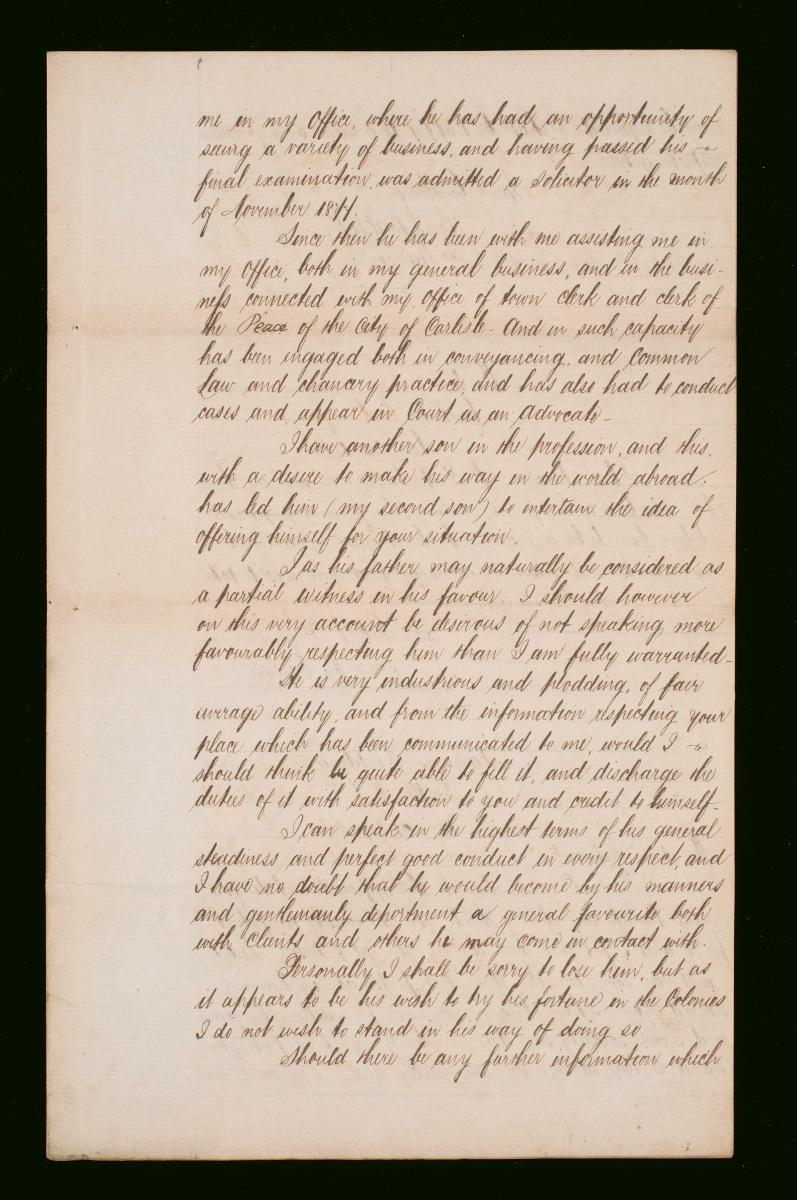 me in my Office, where he has had an opportunity of
seeing a variety of business, and having passed his
final examination, was admitted a Solicitor in the month
of November 1877.
Since then he has been with me assisting me in
my Office, both in my general business, and in the busi-
ness connected with my Office of town Clerk and clerk of
the Peace of the City of Carlisle - And in such capacity
has been engaged both in conveyancing, and Common
Law and chancery practice, and has also had to conduct
cases and appear in Court as an Advocate -
I have another son in the profession, and this,
with a desire to make his way in the world abroad;
has led him (my second son) to entertain the idea of
offering himself for your situation
I as his father may naturally be considered as
a partial witness in his favour; I should however
on this very account be desirous of not speaking more
favourably respecting him than I am fully warranted -
He is very industrious and plodding, of fair
average ability, and from the information respecting your
place which has been communicated to me, would I
should think be quite able to fill it, and discharge the
duties of it with satisfaction to you and credit to himself -
I can speak in the highest terms of his general
steadiness and perfect good conduct in every respect, and
I have no doubt that he would become by his manners
and gentlemanly deportment a general favourite both
with Clients and others he may come in contact with.
Personally I shall be sorry to lose him, but as
it appears to be his wish to try his fortune in the Colonies
I do not wish to stand in his way of doing so.
Should there be any further information which